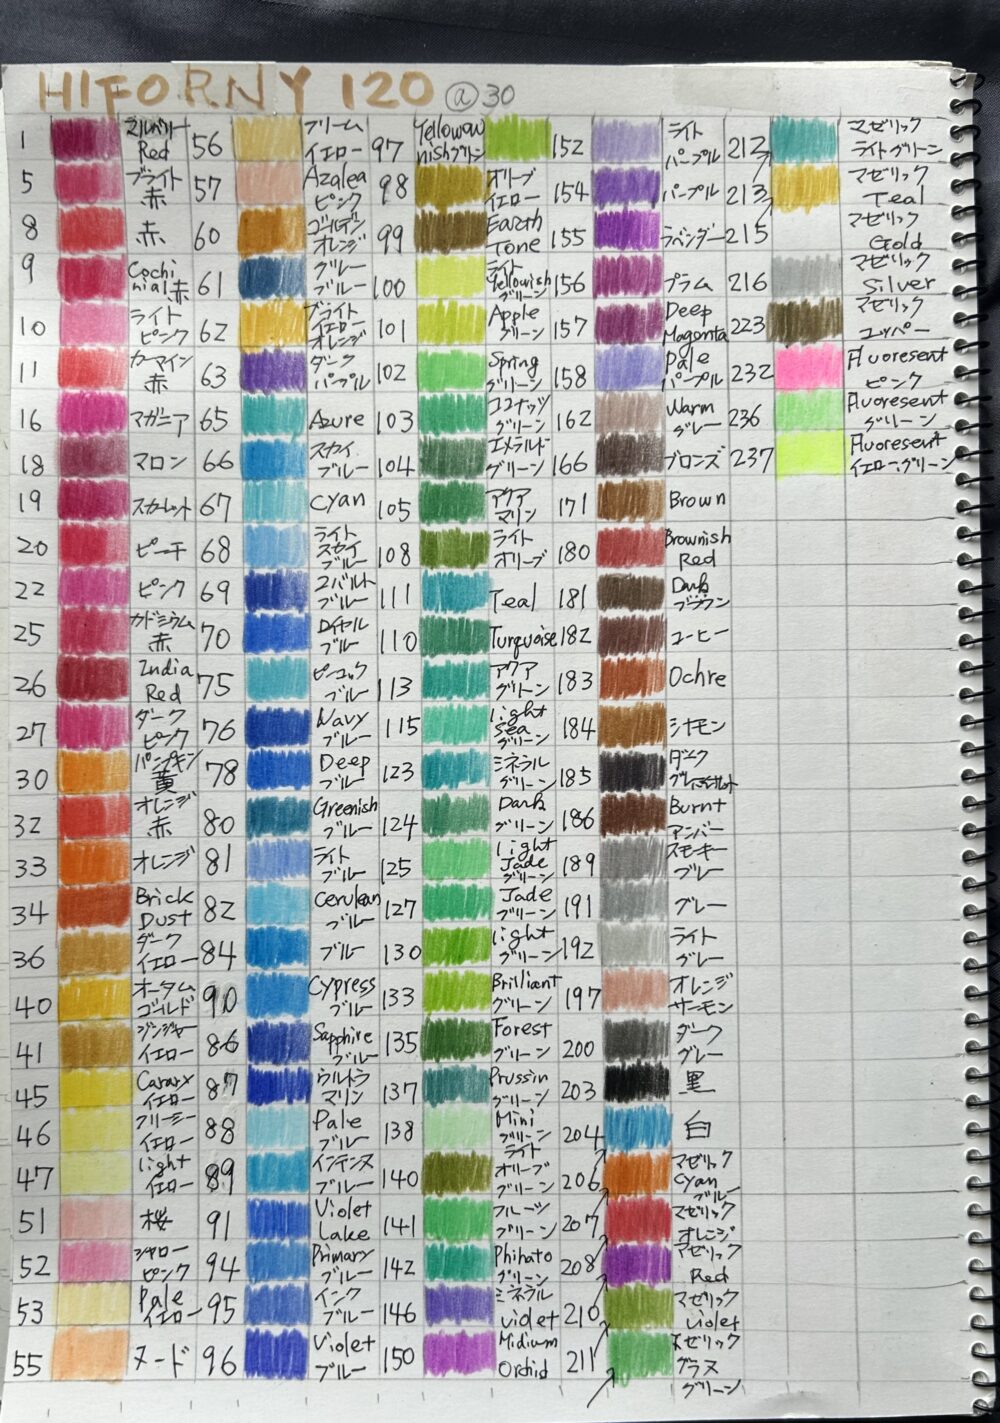 HIFORNY 120 @30
1
マルベリー
Red
5
ブライト
赤
8
赤
9
Cochi
nial赤
10
ライト
ピンク
11
カーマイン
赤
16
マガニア
18
マロン
19
スカーレット
20
ピーチ
22
ピンク
25
カドミウム
赤
26
India
Red
27
ダーク
ピンク
30
パンプキン
黄
32
オレンジ
赤
33
オレンジ
34
Brick
Dust
36
ダーク
イエロー
40
オータム
ゴールド
41
ジンジャー
イエロー
45
Cararyイエロー
46
クリーミー
イエロー
47
light
イエロー
51
桜
52
シャロー
ピンク
53
Pale
イエロー
55
ヌード
56
クリーム
イエロー
57
Azalea
ピンク
60
ゴールデン
オレンジ
61
グレー
ブルー
62
ブライト
イエロー
オレンジ
63
ダーク
パープル
65
Azure
66
スカイ
ブルー
67
Cyan
68
ライト
スカイ
ブルー
69
コバルト
ブルー
70
ロイヤル
ブルー
75
ピーコック
ブルー
76
Navy
ブルー
78
Deep
ブルー
80
Greenish
ブルー
81
ライト
ブルー
82
Cerulean
ブルー
84
ブルー
90
Cypress
ブルー
86
Sapphire
ブルー
87
ウルトラ
マリン
88
Pale
ブルー
89
インテンス
ブルー
91
Violet
Lake
94
Primary
ブルー
95
インク
ブルー
96
Violet
ブルー
97
Yellowow
nishグリーン
98
オリーブ
イエロー
99
Earth
Tone
100
ライト
Yellowish
グリーン
101
Apple
グリーン
102
Spring
グリーン
103
ココナッツ
グリーン
104
エメラルド
グリーン
105
アクア
マリン
108
ライト
オリーブ
111
Teal
110
Turquoise
113
アクア
グリーン
115
light
Sea
グリーン
123
ミネラル
グリーン
124
Dark
グリーン
125
light
Jade
グリーン
127
Jade
グリーン
130
light
グリーン
133
Brilliant
グリーン
135
Forest
グリーン
137
Prussin
グリーン
138
Mini
グリーン
ライト
140
オリーブ
グリーン
141
フルーツ
グリーン
142
Phihato
グリーン
146
ミネラル
violet
150
Midium
Orchid
152
ライト
パープル
154
パープル
155
ラベンダー
156
プラム
157
Deep
Magenta
158
Pale
パープル
162
Warm
グレー
166
ブロンズ
171
Brown
180
Brownish
Red
181
Dark
ブラウン
182
コーヒー
183
Ochre
184
シナモン
185
ダーク
186
Burnt
アンバー
189
スモーキー
グレー
191
グレー
192
ライト
グレー
197
オレンジ
サーモン
200
ダーク
グレー
203
黒
204
白
206
マゼリック
Cyan
ブルー
207
マゼリック
オレンジ
208
マゼリック
Red
210
マゼリック
Violet
211
マゼリック
グラス
グリーン
212
マゼリック
ライトグリーン
213
マゼリック
Teal
215
マゼリック
Gold
216
マゼリック
Silver
223
マゼリック
コッパー
232
Fluoresent
ピンク
236
Fluoresent
グリーン
237
Fluoresent
イエローグリーン